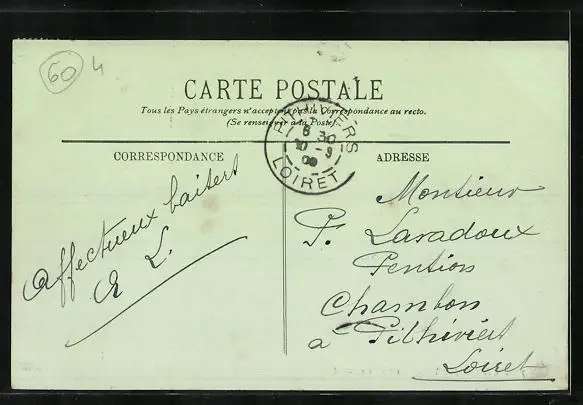 60 4
CARTE POSTALE
Tous les Pays étrangers n'acceptent pas la Correspondance au recto.
(Se renseigner à la Poste)
PITHIVIERS
6 30
10 - 9
09
LOIRET
CORRESPONDANCE
ADRESSE
Affectueux baisers
L.
Monsieur
P. Lavadoux
Pension
Chambon
à Pithiviers
Loiret